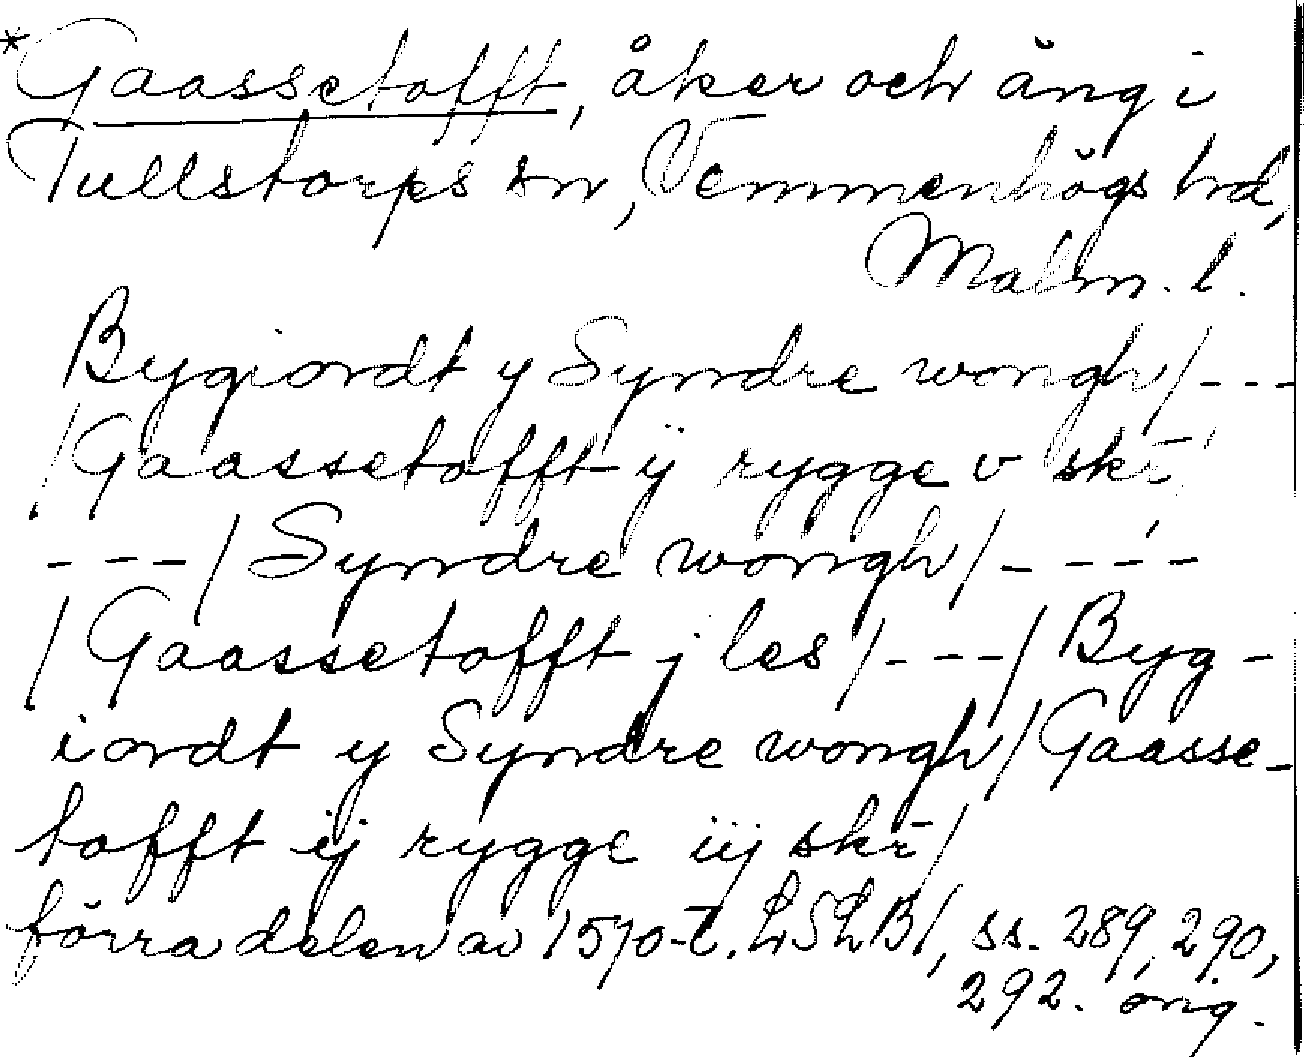 *Gaassetofft, åker och äng i
Tullstorps sn, Vemmenhögs hd,
Malm. l.
Bygiordt y Syndre wongh/---
/Gaassetofft ÿ rygge v skr̄/
---/Syndre wongh/----
/Gaassetofft j les/---/Byg-
iordt y Syndre wongh/Gaasse-
tofft ij rygge iij skr̄/
förra delen av 1570-t. LSLB1, ss. 289, 290,
292. orig.